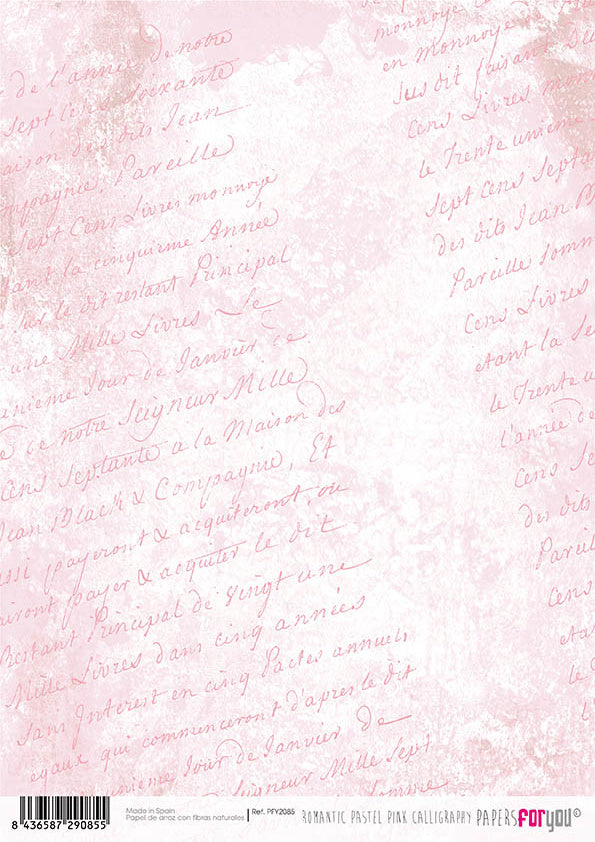 de l'année de notre
Sept Cens Soixante
aison des dits Jean
ompagnie, Pareille
Sept Cens Livres monnoye
ant la cinquirme Année
Sur le dit restant Principal
une Mille Livres Le
unieme Jour de Janvier de
de notre Seigneur Mille
Cens Septante a la Maison des
Jean Black & Compagnie, Et
ussi payeront & acquiteront, ou
airont payer & acquiter le dit
Restant Principal de Vingt une
Mille Livres dans cinq années
Sans Interest en cinq Pactes annuels
egaux qui commenceront d'apres le dit
unieme Jour de Janvier de
Seigneur Mille Sept
Somme
monnoye
en monnoye
Sus dit faisant
Cens Livres mon
le Trente unieme
Sept Cens Septan
des dits Jean B
Pareille Somm
Cens Livres
etant la Se
le Trente u
l'année de
Cens Se
des dits
Pareill
Cens
etan
le
l'
8 436587 290855
Made in Spain
Papel de arroz con fibras naturales
Ref. PFY2085
ROMANTIC PASTEL PINK CALLIGRAPHY
PAPERS FOR YOU ©